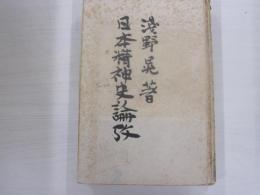 淺野晃著
日本精神史論攷